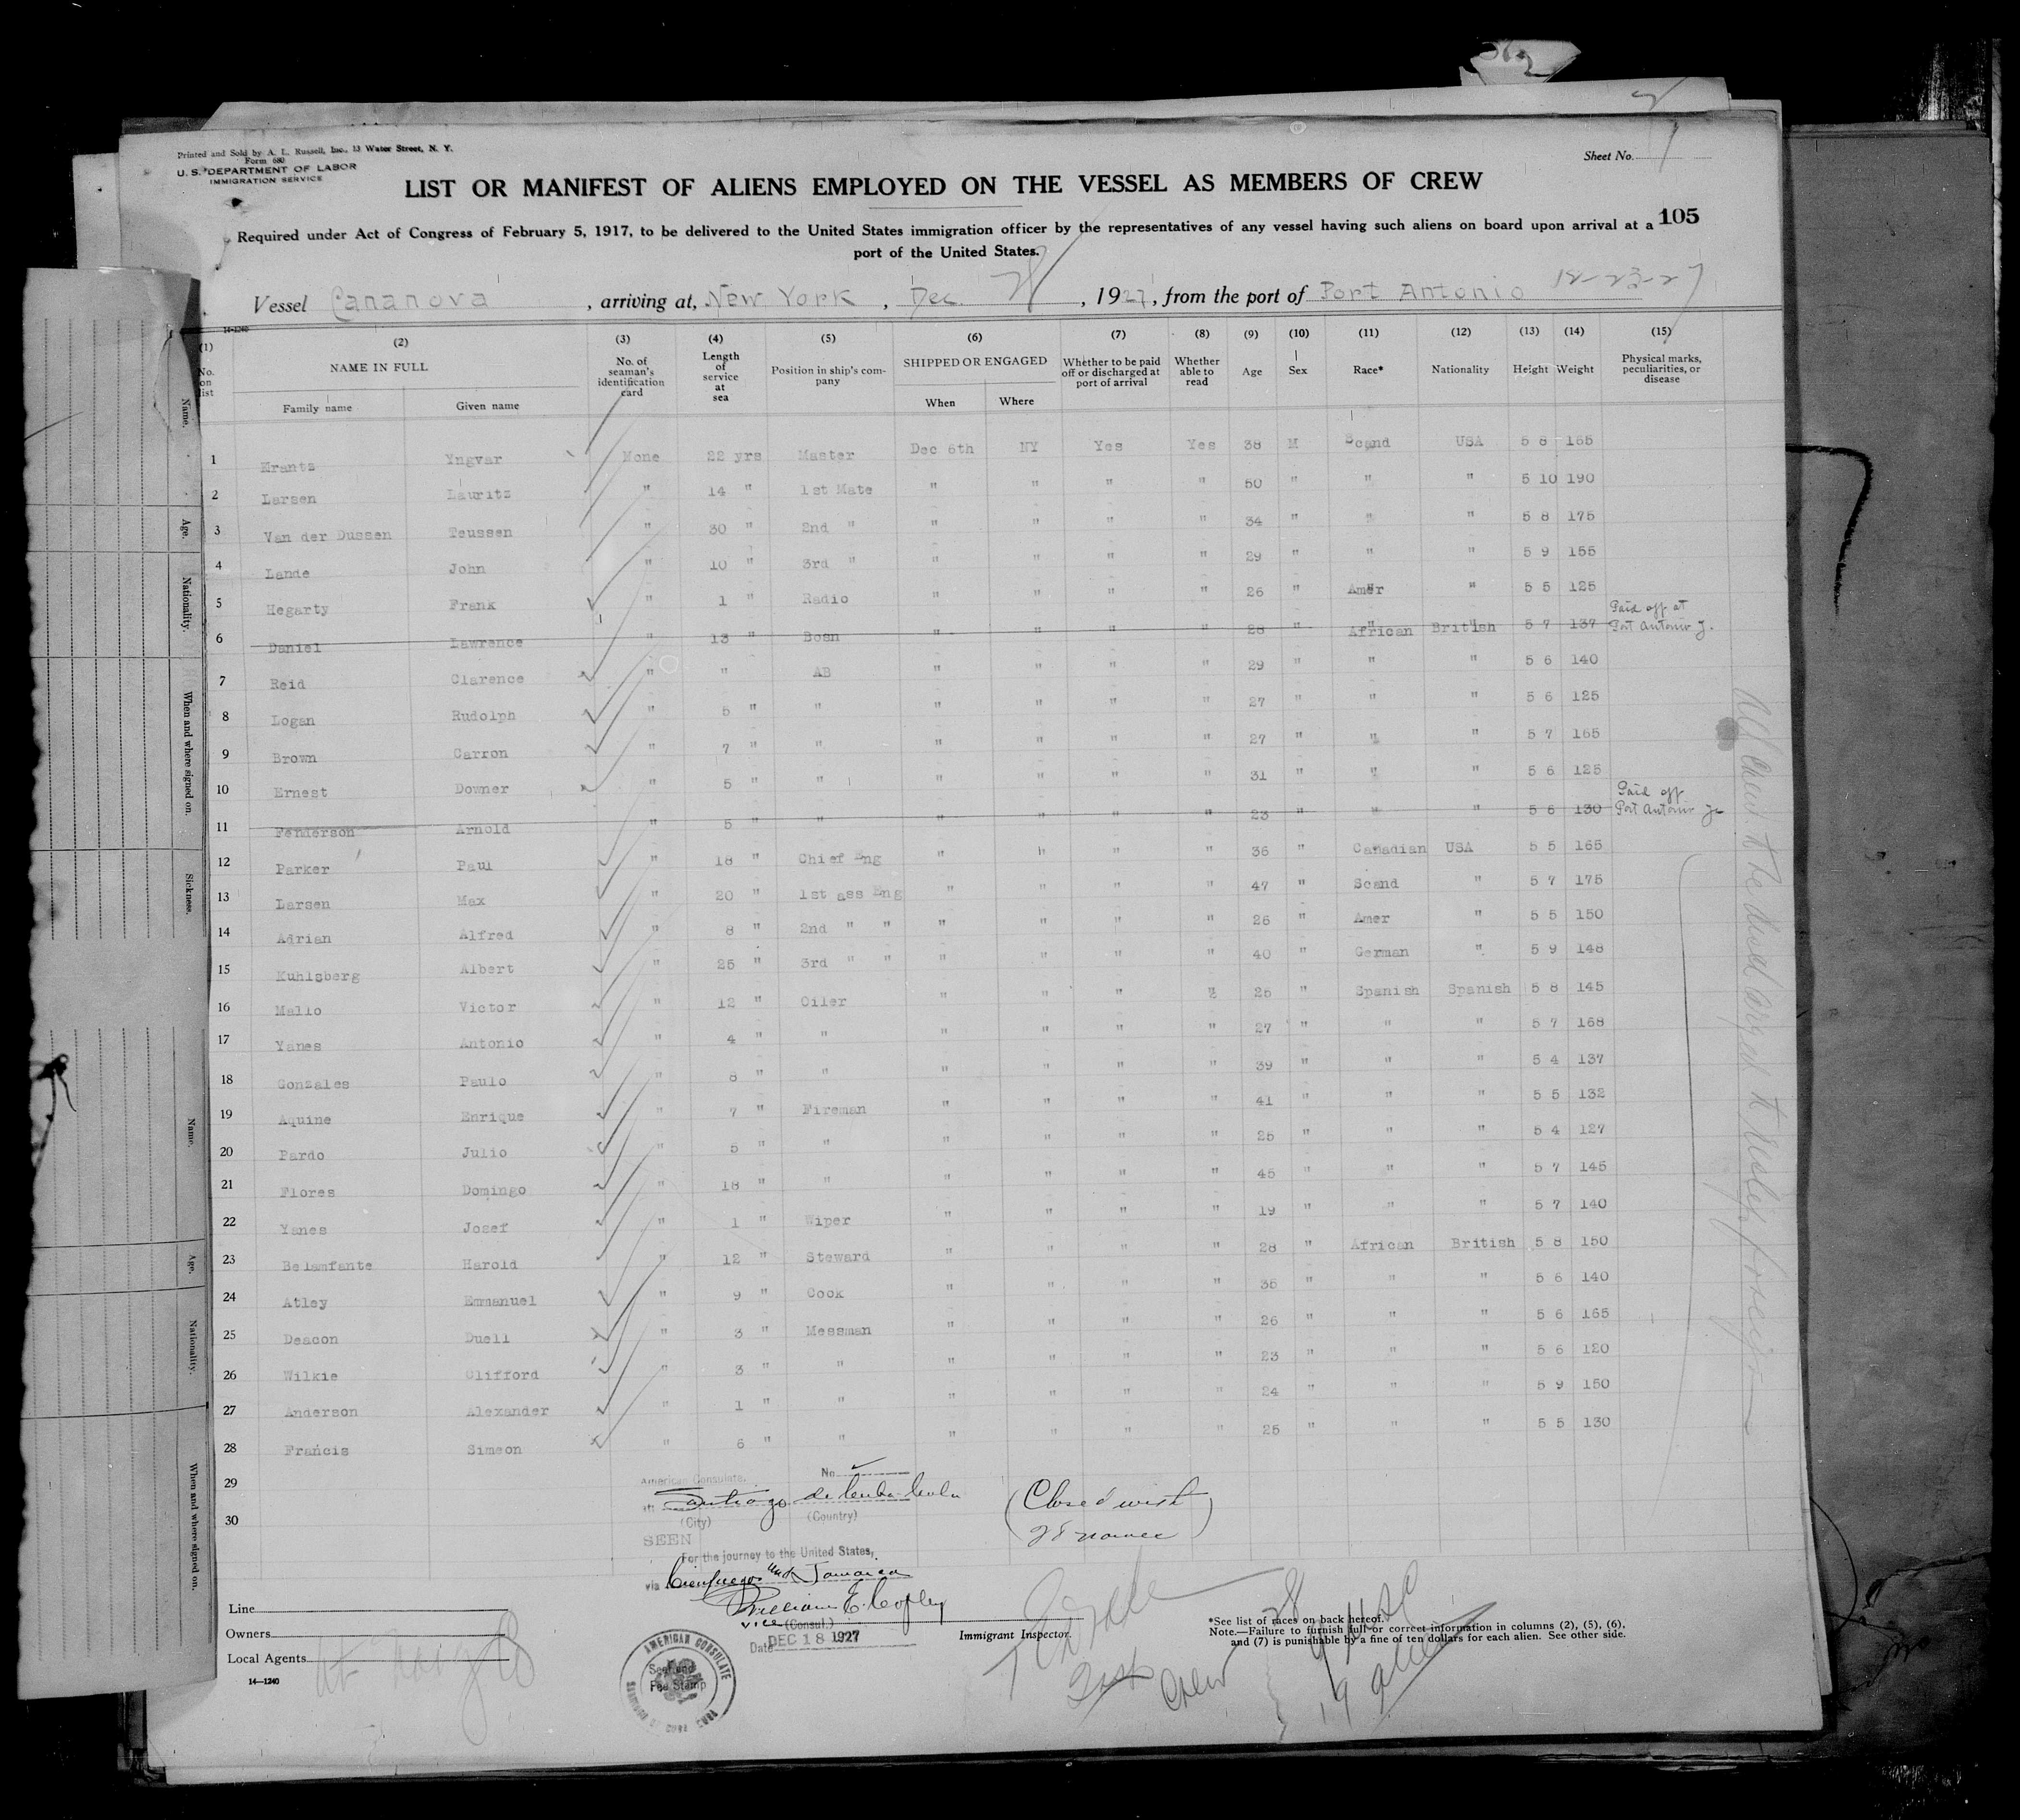 Printed and Sold by A. L. Russell, Inc., 13 Water Street, N. Y.
Form 680
U. S. DEPARTMENT OF LABOR
IMMIGRATION SERVICE
Sheet No.
LIST OR MANIFEST OF ALIENS EMPLOYED ON THE VESSEL AS MEMBERS OF CREW
105
Required under Act of Congress of February 5, 1917, to be delivered to the United States immigration officer by the representatives of any vessel having such aliens on board upon arrival at a
port of the United States.
12-23-27
Vessel Cananova, arriving at, New York, Dec. 1927, from the port of Port Antonio
14-1240
(1) (2) (3) (4) (5) (6) (7) (8) (9) (10) (11) (12) (13) (14) (15)
No. on list NAME IN FULL Family name Given name No. of seaman's identification card Length of service at sea Position in ship's company SHIPPED OR ENGAGED When Where Whether to be paid off or discharged at port of arrival Whether able to read Age Sex Race* Nationality Height Weight Physical marks, peculiarities, or disease
1 Krantz Yngvar None 22 yrs Master Dec 6th NY Yes Yes 38 M Scand USA 5 8 165
2 Larsen Lauritz " 14 " 1st Mate " " " " 50 " " " 5 10 190
3 Van der Dussen Teussen " 30 " 2nd " " " " " 34 " " " 5 8 175
4 Lande John " 10 " 3rd " " " " " 29 " " " 5 9 155
5 Hegarty Frank " 1 " Radio " " " " 26 " Amer " 5 5 125
6 Daniel Lawrence " 13 " Bosn " " " " 28 " African British 5 7 137 Paid off at Port Antonio J.
7 Reid Clarence " " AB " " " " 29 " " " 5 6 140
8 Logan Rudolph " 5 " " " " " " 27 " " " 5 6 125
9 Brown Carron " 7 " " " " " " 27 " " " 5 7 165
10 Ernest Downer " 5 " " " " " " 31 " " " 5 6 125
11 Fenderson Arnold " 5 " " " " " " 23 " " " 5 6 130 Paid off Port Antonio Ja
12 Parker Paul " 18 " Chief Eng " " " " 36 " Canadian USA 5 5 165
13 Larsen Max " 20 " 1st ass Eng " " " " 47 " Scand " 5 7 175
14 Adrian Alfred " 8 " 2nd " " " " " " 26 " Amer " 5 5 150
15 Kuhlsberg Albert " 25 " 3rd " " " " " " 40 " German " 5 9 148
16 Mallo Victor " 12 " Oiler " " " " 25 " Spanish Spanish 5 8 145
17 Yanes Antonio " 4 " " " " " " 27 " " " 5 7 168
18 Gonzales Paulo " 8 " " " " " " 39 " " " 5 4 137
19 Aquine Enrique " 7 " Fireman " " " " 41 " " " 5 5 132
20 Pardo Julio " 5 " " " " " " 25 " " " 5 4 127
21 Flores Domingo " 18 " " " " " " 45 " " " 5 7 145
22 Yanes Josef " 1 " Wiper " " " " 19 " " " 5 7 140
23 Belamfante Harold " 12 " Steward " " " " 28 " African British 5 8 150
24 Atley Emmanuel " 9 " Cook " " " " 35 " " " 5 6 140
25 Deacon Duell " 3 " Messman " " " " 26 " " " 5 6 165
26 Wilkie Clifford " 3 " " " " " " 23 " " " 5 6 120
27 Anderson Alexander " 1 " " " " " " 24 " " " 5 9 150
28 Francis Simeon " 6 " " " " " " 25 " " " 5 5 130
29
30
American Consulate. No.
at Santiago de Cuba Cuba
(City) (Country)
(Closed with
28 names)
SEEN
For the journey to the United States,
via Cienfuegos and Jamaica
William E. Copley
vice (Consul.)
Date DEC 18 1927
AMERICAN CONSULATE
Seal and
Fee Stamp
SANTIAGO DE CUBA, CUBA
Line
Owners
Local Agents
14—1240
Immigrant Inspector.
*See list of races on back hereof.
Note.—Failure to furnish full or correct information in columns (2), (5), (6),
and (7) is punishable by a fine of ten dollars for each alien. See other side.
28
9 USC
19 aliens
Crew
Name.
Age.
Nationality.
When and where signed on.
Sickness.
Name.
Age.
Nationality.
When and where signed on.